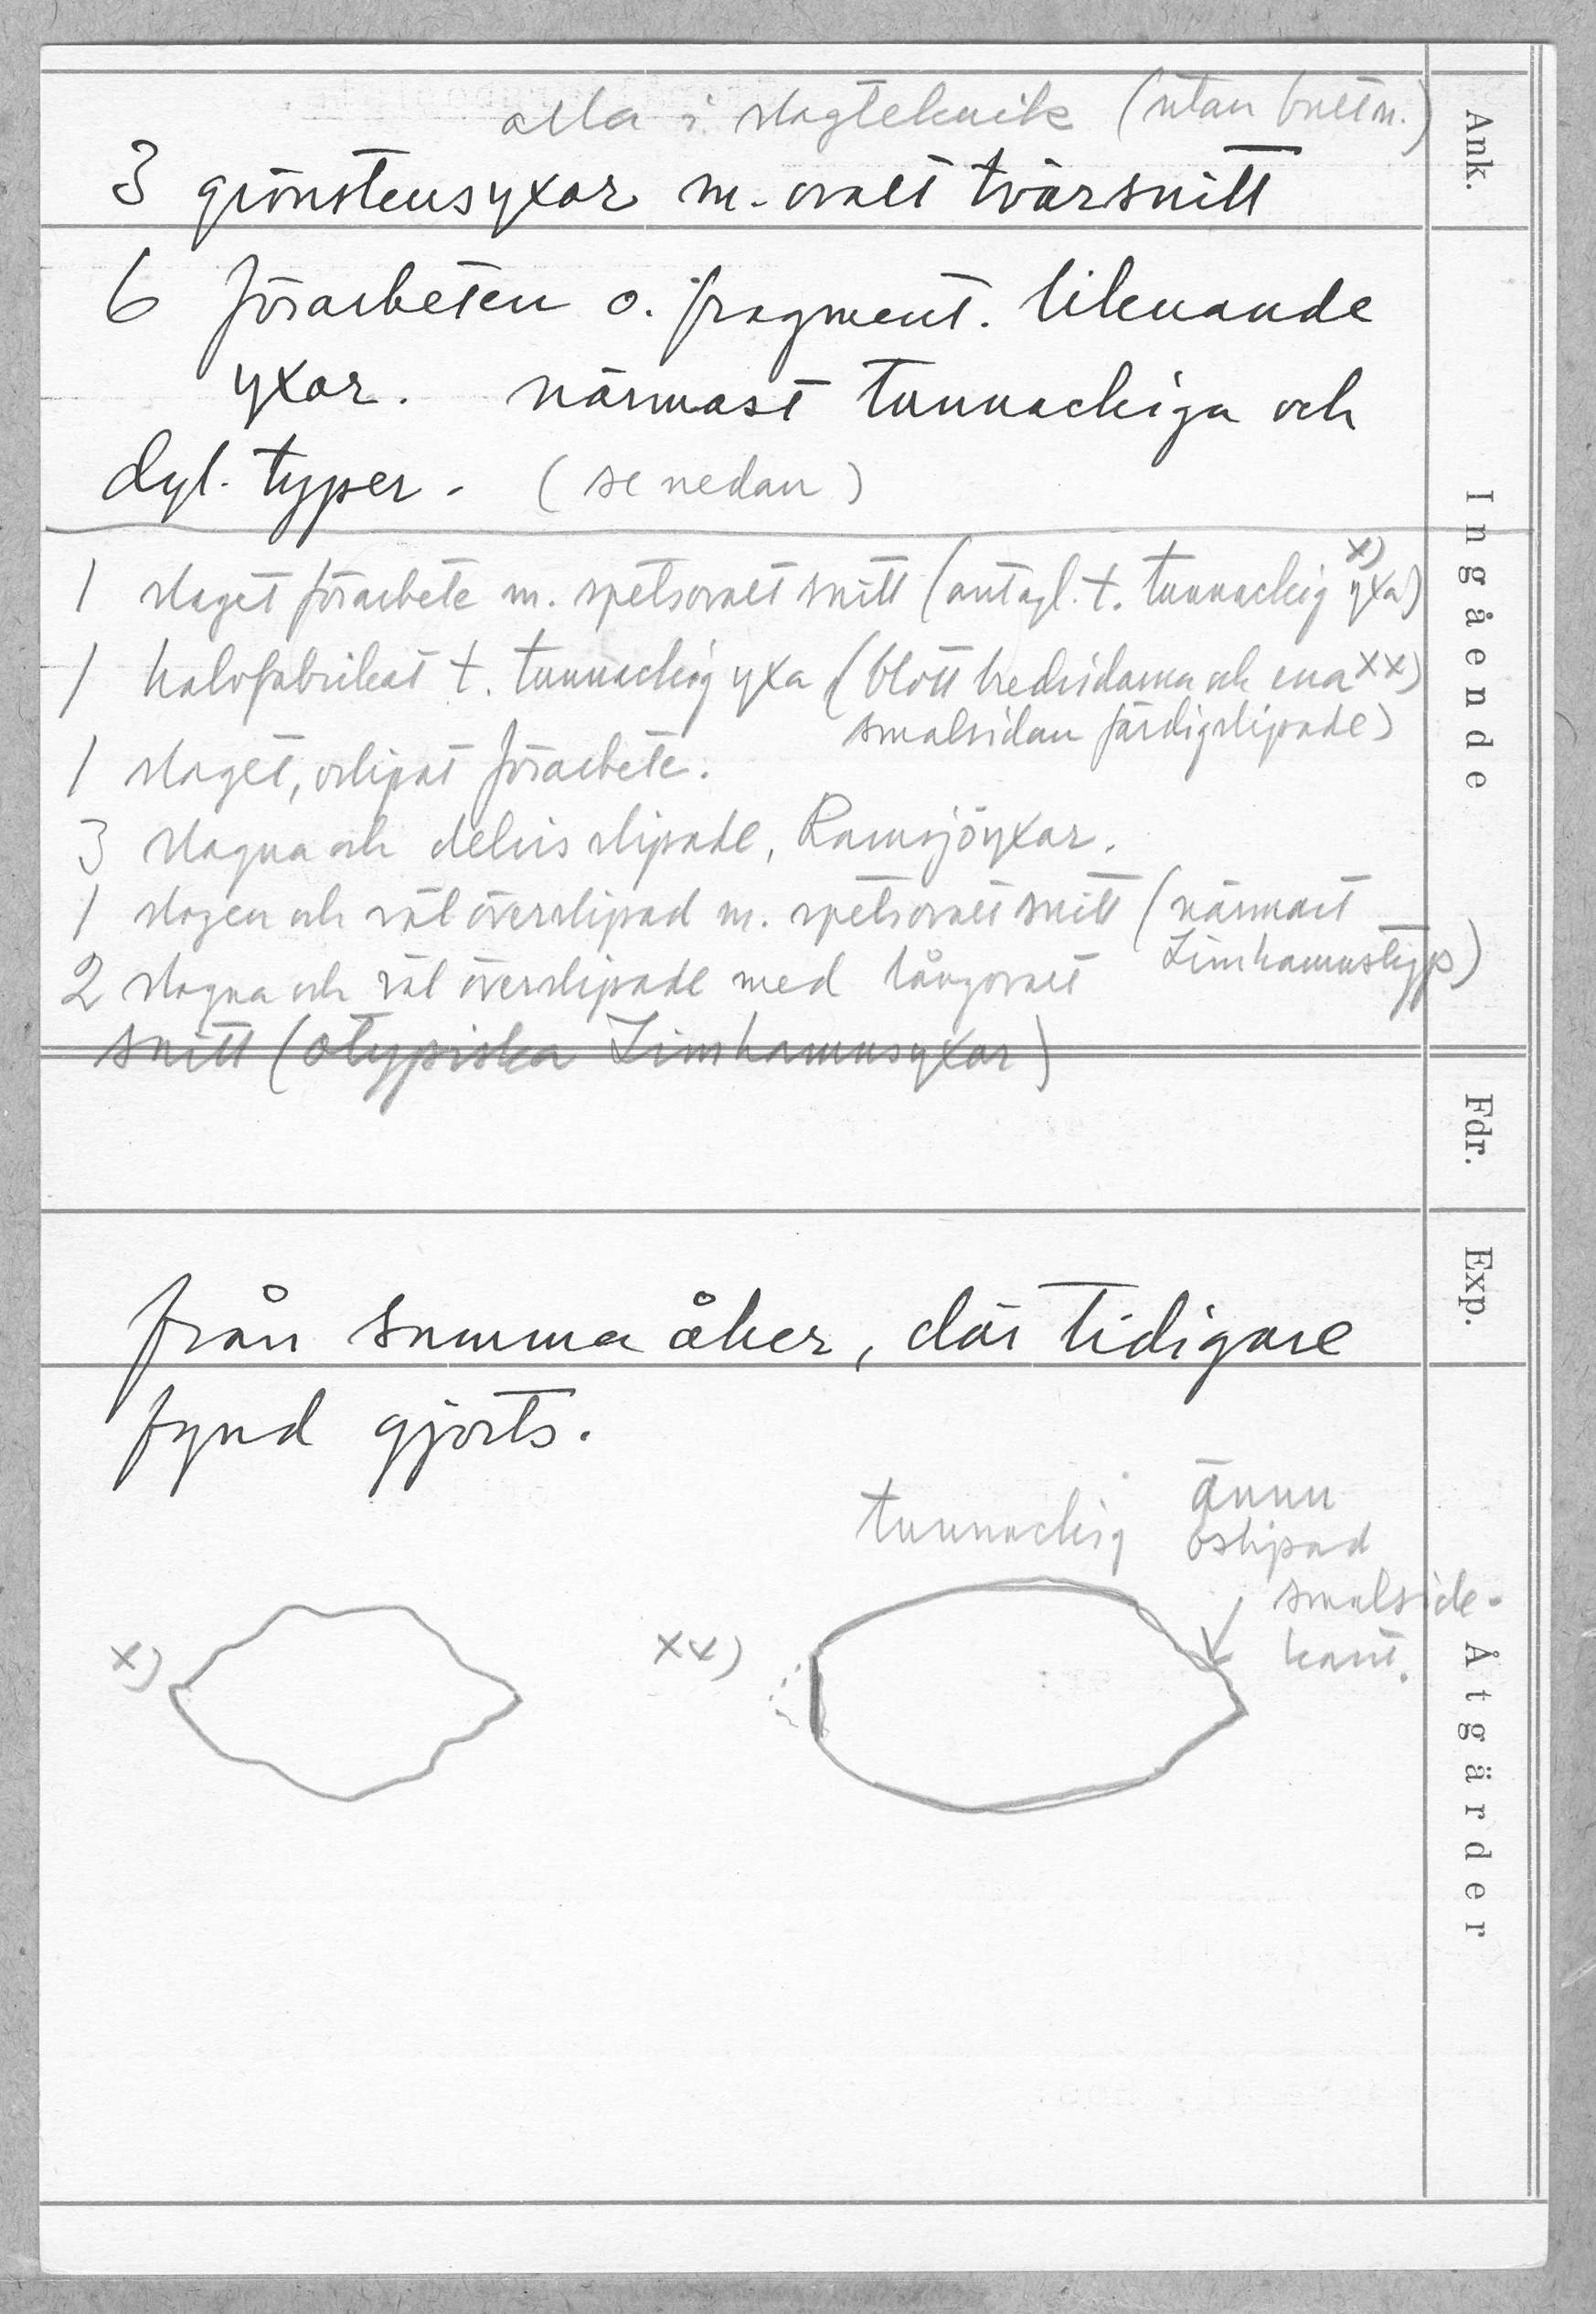 alla i slagteknik (utan bultn.)
3 grönstensyxor m. ovalt tvärsnitt
6 förarbeten o. fragment. liknande
yxor. närmast tunnackiga och
dyl. typer. (se nedan)
1 slaget förarbete m. spetsovalt snitt (antagl. t. tunnackig yxa) x)
1 halvfabrikat t. tunnackig yxa (blott bredsidorna och ena xx)
smalsidan färdigslipade)
1 slaget, oslipat förarbete.
3 slagna och delvis slipade, Ramsjöyxor.
1 slagen och väl överslipad m. spetsovalt snitt (närmast
Limhamnstyp)
2 slagna och väl överslipade med långovalt
snitt (otypiska Limhamnsyxor)
från samma åker, där tidigare
fynd gjorts.
tunnackig
ännu
oslipad
smalside-
kant.
x)
xx)
Ank.
Ingående
Fdr.
Exp.
Åtgärder